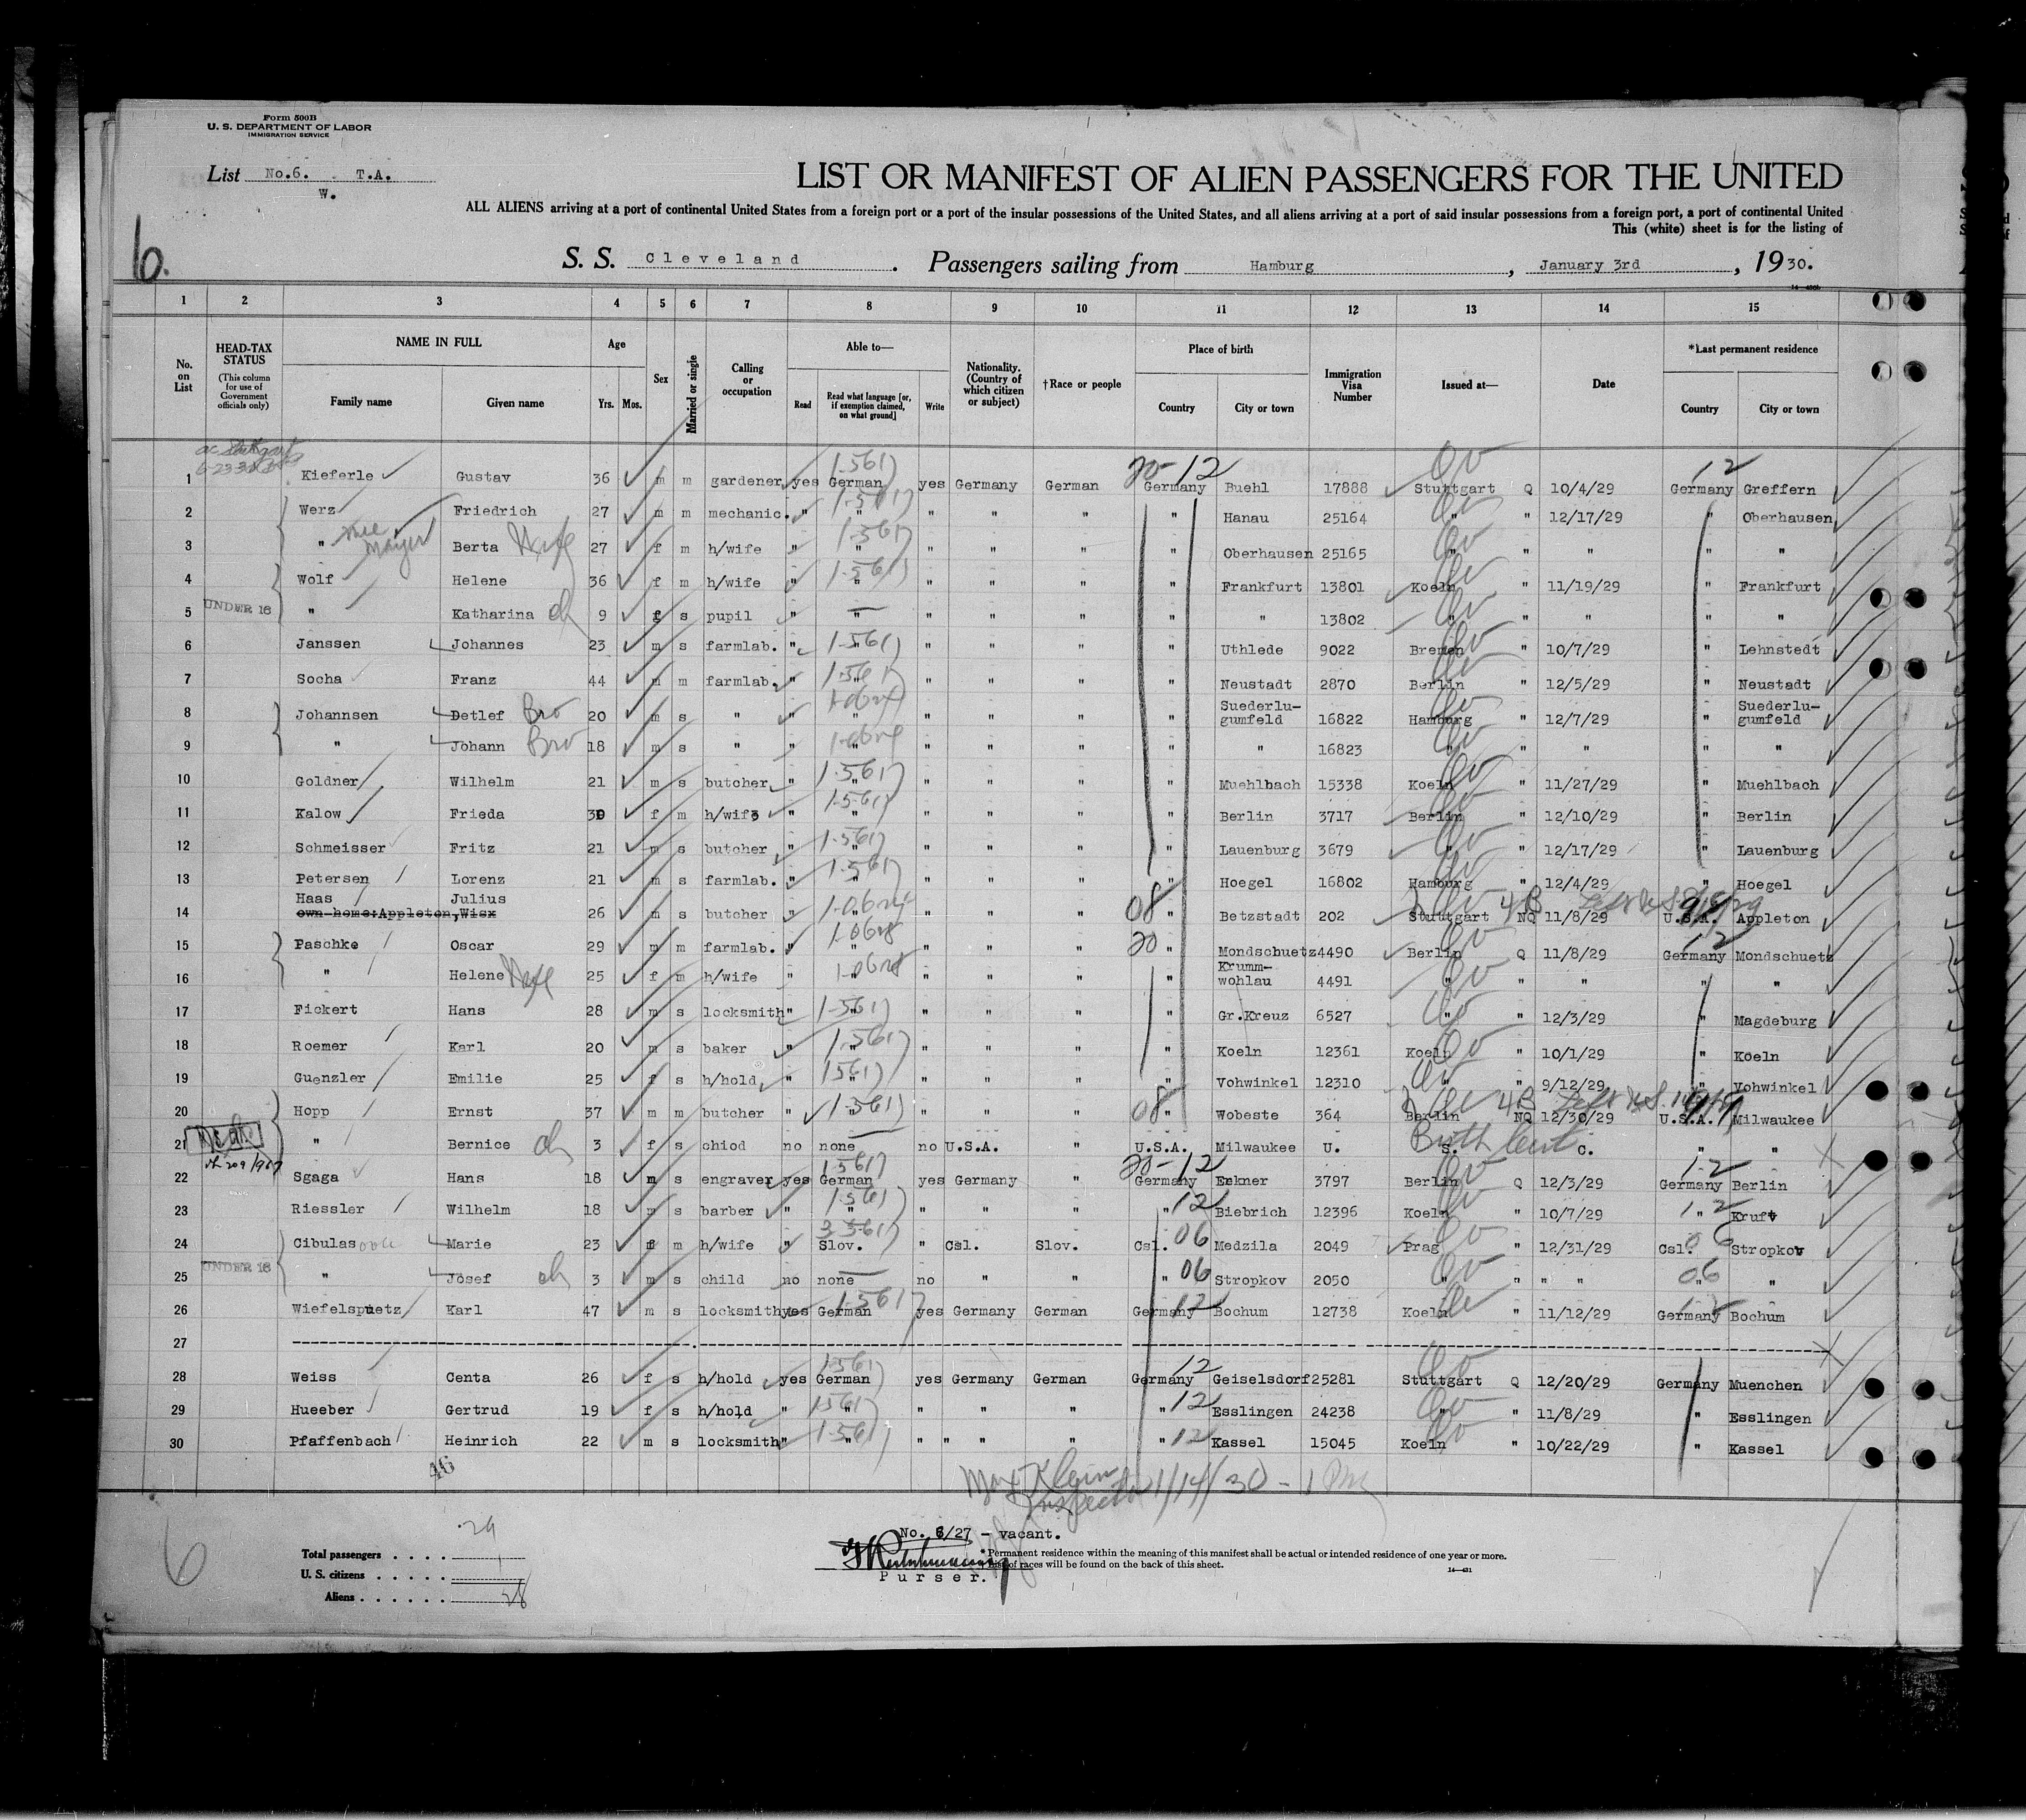 Form 500B
U. S. DEPARTMENT OF LABOR
IMMIGRATION SERVICE
List No.6. T.A.
W.
6.
LIST OR MANIFEST OF ALIEN PASSENGERS FOR THE UNITED
ALL ALIENS arriving at a port of continental United States from a foreign port or a port of the insular possessions of the United States, and all aliens arriving at a port of said insular possessions from a foreign port, a port of continental United
This (white) sheet is for the listing of
S. S. Cleveland. Passengers sailing from Hamburg, January 3rd, 1930.
1 2 3 4 5 6 7 8 9 10 11 12 13 14 15
No. on List
HEAD-TAX STATUS (This column for use of Government officials only)
NAME IN FULL Family name Given name
Age Yrs. Mos.
Sex
Married or single
Calling or occupation
Able to— Read Read what language [or, if exemption claimed, on what ground] Write
Nationality. (Country of which citizen or subject)
†Race or people
Place of birth Country City or town
Immigration Visa Number
Issued at—
Date
*Last permanent residence Country City or town
1 Kieferle Gustav 36 m m gardener yes German 1-561 yes Germany German 20-12 Germany Buehl 17888 Stuttgart Q 10/4/29 12 Germany Greffern
2 Werz Friedrich 27 m m mechanic. " " 1-561 " " " " Hanau 25164 " " 12/17/29 " Oberhausen
3 " nee Mayer Berta Wife 27 f m h/wife " " 1-561 " " " " Oberhausen 25165 " " " " "
4 Wolf Helene 36 f m h/wife " " 1-561 " " " " Frankfurt 13801 Koeln " 11/19/29 " Frankfurt
UNDER 16 5 " Katharina ch 9 f s pupil " " " " " " " 13802 " " " " "
6 Janssen Johannes 23 m s farmlab. " " 1-561 " " " " Uthlede 9022 Bremen " 10/7/29 " Lehnstedt
7 Socha Franz 44 m m farmlab. " " 1-561 " " " " Neustadt 2870 Berlin " 12/5/29 " Neustadt
8 Johannsen Detlef Bro 20 m s " " " " " " " Suederlu-gumfeld 16822 Hamburg " 12/7/29 " Suederlu-gumfeld
9 " Johann Bro 18 m s " " " " " " " " 16823 " " " " "
10 Goldner Wilhelm 21 m s butcher " " 1-561 " " " " Muehlbach 15338 Koeln " 11/27/29 " Muehlbach
11 Kalow Frieda h/wife f m " " 1-561 " " " " Berlin 3717 Berlin " 12/10/29 " Berlin
12 Schmeisser Fritz 21 m s butcher " " 1-561 " " " " Lauenburg 3679 " " 12/17/29 " Lauenburg
13 Petersen Lorenz 21 m s farmlab. " " 1-561 " " " " Hoegel 16802 Hamburg " 12/4/29 " Hoegel
14 Haas Julius own home:Appleton,Wisx 26 m s butcher " " " " " 08 " Betzstadt 202 Stuttgart 4B NQ 11/8/29 U.S.A. Appleton
15 Paschke Oscar 29 m m farmlab. " " " " " 20 " Mondschuetz 4490 Berlin Q 11/8/29 12 Germany Mondschuetz
16 " Helene Wife 25 f m h/wife " " " " " " Krumm-wohlau 4491 " " " " "
17 Fickert Hans 28 m s locksmith " " 1-561 " " " " Gr.Kreuz 6527 " " 12/3/29 " Magdeburg
18 Roemer Karl 20 m s baker " " 1-561 " " " " Koeln 12361 Koeln " 10/1/29 " Koeln
19 Guenzler Emilie 25 f s h/hold " " 1561 " " " " Vohwinkel 12310 " " 9/12/29 " Vohwinkel
20 Hopp Ernst 37 m m butcher " " 1-561 " " " 08 " Wobeste 364 Berlin 4B NQ 12/30/29 U.S.A. Milwaukee
21 " Bernice ch 3 f s chiod no none no U.S.A. " U.S.A. Milwaukee U. S. C. Birth Cert. " "
22 Sgaga Hans 18 m s engraver yes German 1561 yes Germany " 20-12 Germany Erkner 3797 Berlin Q 12/3/29 12 Germany Berlin
23 Riessler Wilhelm 18 m s barber " " 1-561 " " " " 12 Biebrich 12396 Koeln " 10/7/29 " 12 Kruft
24 Cibulas ova Marie 23 f m h/wife " Slov. 3561 " Csl. Slov. Csl. 06 Medzila 2049 Prag " 12/31/29 Csl. 06 Stropkov
UNDER 16 25 " Josef ch 3 m s child no none no " " " 06 Stropkov 2050 " " " 06 " "
26 Wiefelspuetz Karl 47 m s locksmith yes German 1-561 yes Germany German Germany 12 Bochum 12738 Koeln " 11/12/29 Germany 12 Bochum
27
28 Weiss Centa 26 f s h/hold yes German 1-561 yes Germany German Germany 12 Geiselsdorf 25281 Stuttgart Q 12/20/29 Germany Muenchen
29 Hueber Gertrud 19 f s h/hold " " 1561 " " " " 12 Esslingen 24238 " " 11/8/29 " Esslingen
30 Pfaffenbach Heinrich 22 m s locksmith " " 1-561 " " " " " 12 Kassel 15045 Koeln " 10/22/29 " Kassel
46
Max Klein
Inspector 1/14/30 - 1 PM
6
No. 6/27 - vacant.
Purser.
Total passengers . . . . 29
U. S. citizens . . . . . 1
Aliens . . . . . . 28
* Permanent residence within the meaning of this manifest shall be actual or intended residence of one year or more.
† List of races will be found on the back of this sheet.
14—431